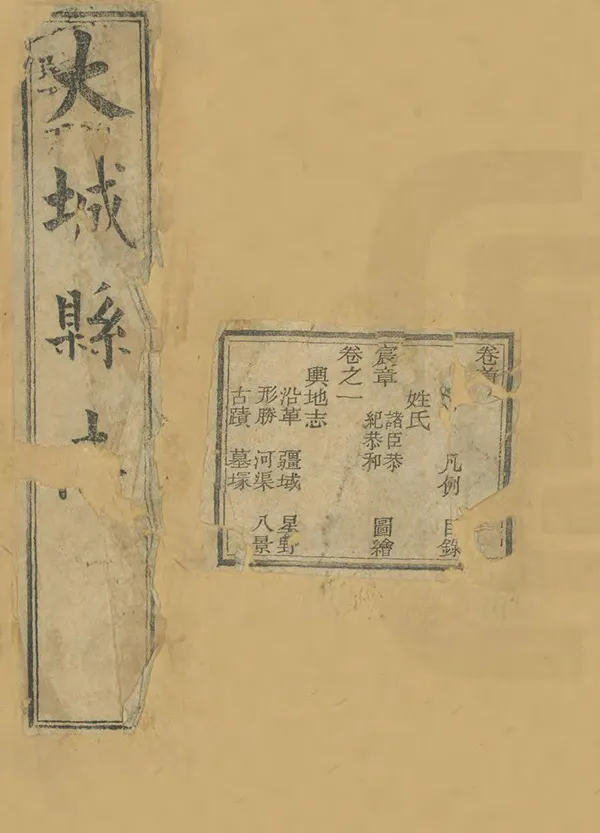 大城縣志
卷首
凡例 目錄
姓氏
宸章 諸臣恭紀恭和 圖繪
卷之一
輿地志
沿革 疆域 星野
形勝 河渠 八景
古蹟 墓塚